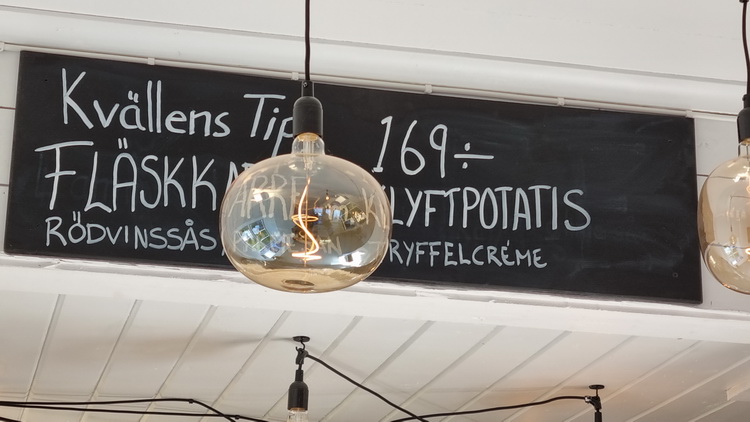 Kvällens Tips 169÷
FLÄSKKARRE KLYFTPOTATIS
RÖDVINSSÅS TRYFFELCRÉME